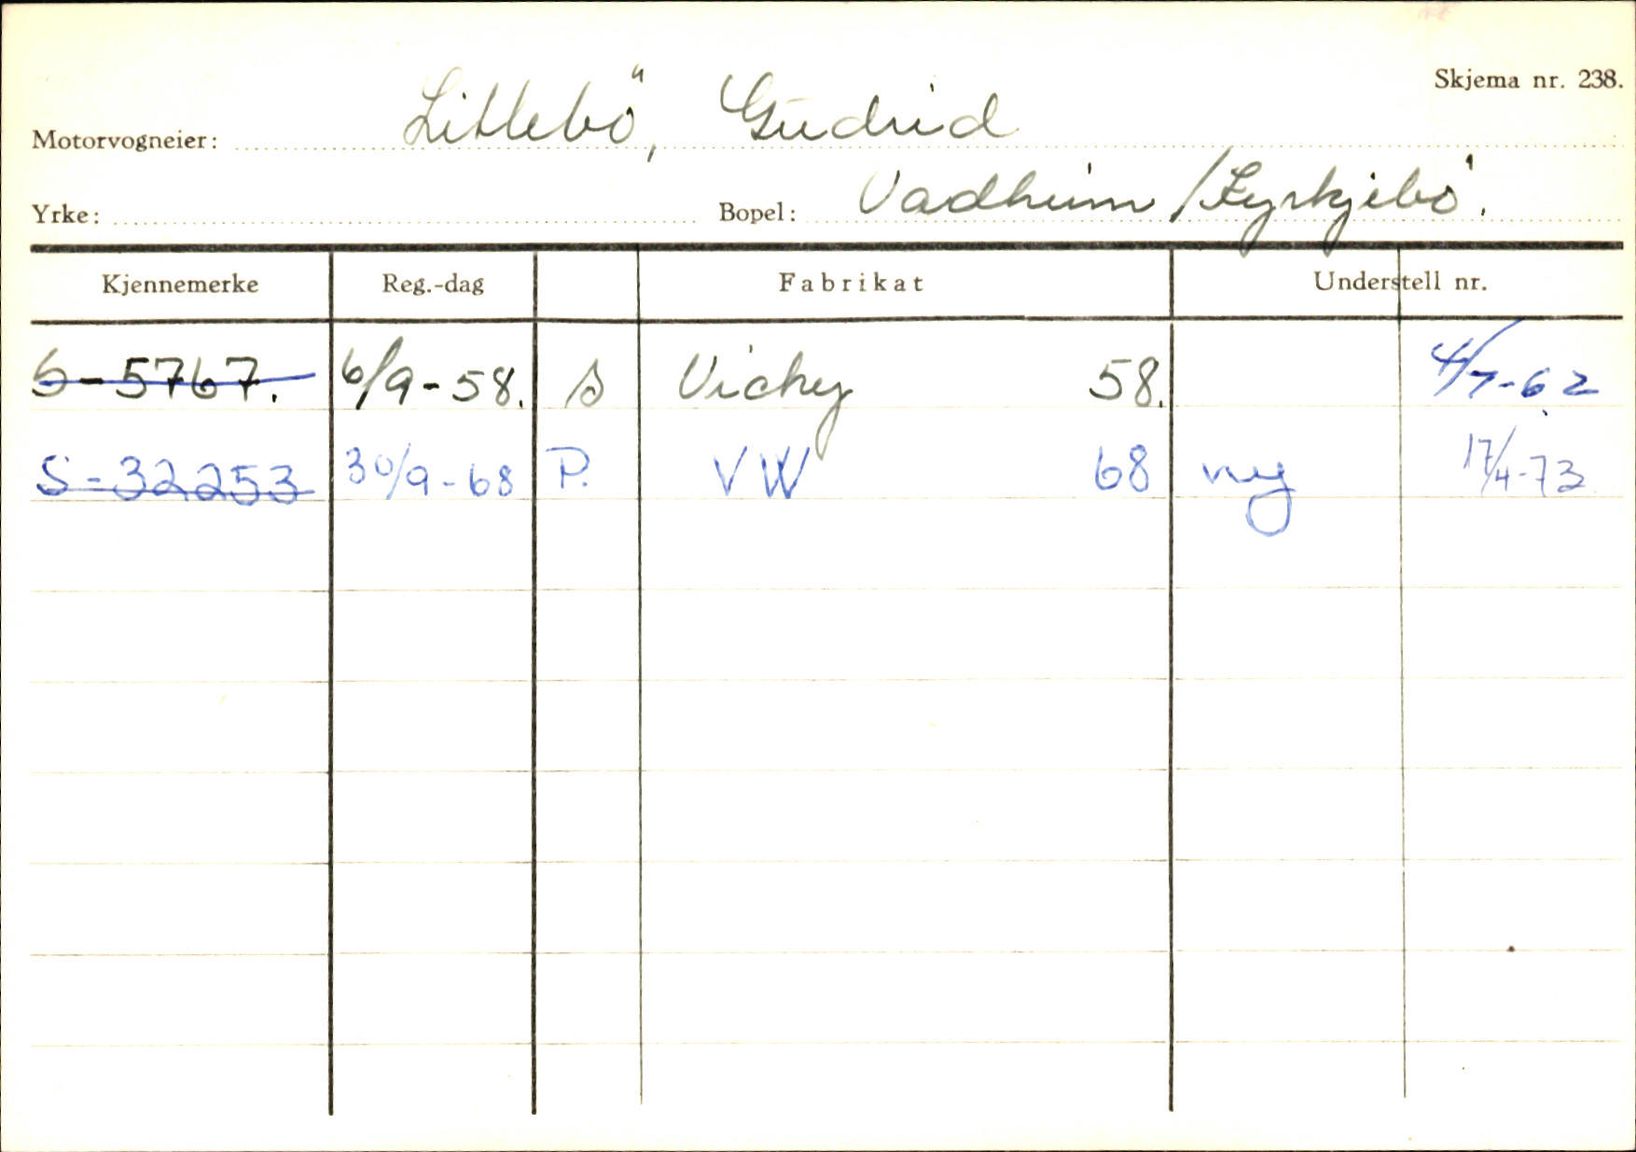 Skjema nr. 238.
Motorvogneier: Littlebö, Gudrid
Yrke: Bopel: Vadheim / Kyrkjebö.
Kjennemerke Reg.-dag Fabrikat Understell nr.
S-5767. 6/9-58. s Vicky 58. 4/7-62
S-32253 30/9-68 P. VW 68 ny 17/4-73